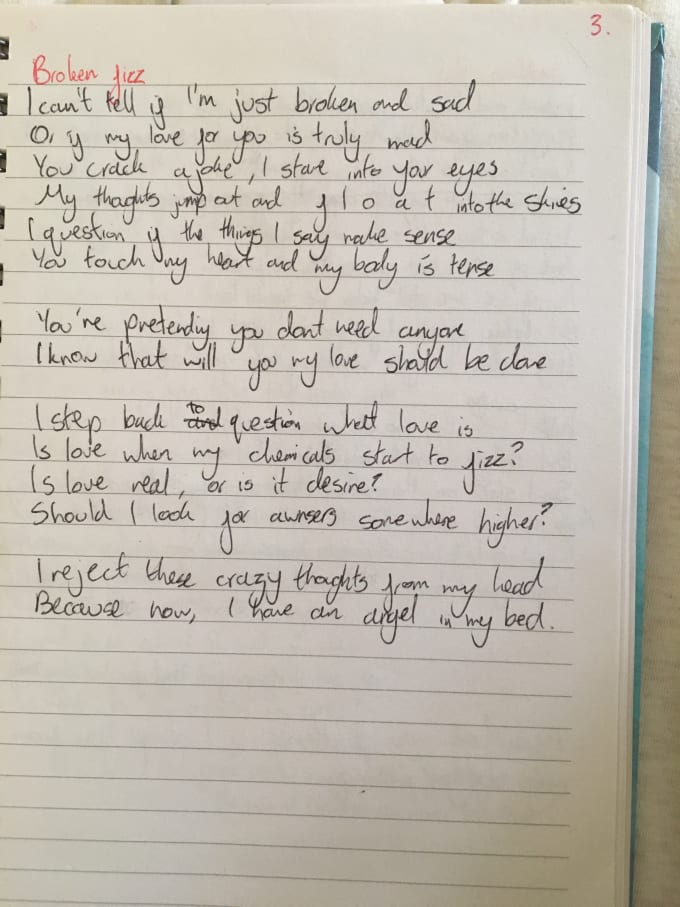 3.
Broken fizz
I can't tell if I'm just broken and sad
Or if my love for you is truly mad
You crack a joke, I stare into your eyes
My thoughts jump out and f l o a t into the skies
I question if the things I say make sense
You touch my heart and my body is tense
You're pretending you dont need anyone
I know that will you my love should be done
I step back to question whatt love is
Is love when my chemicals start to fizz?
Is love real, or is it desire?
Should I look for awnsers somewhere higher?
I reject these crazy thoghts from my head
Because now, I have an angel in my bed.